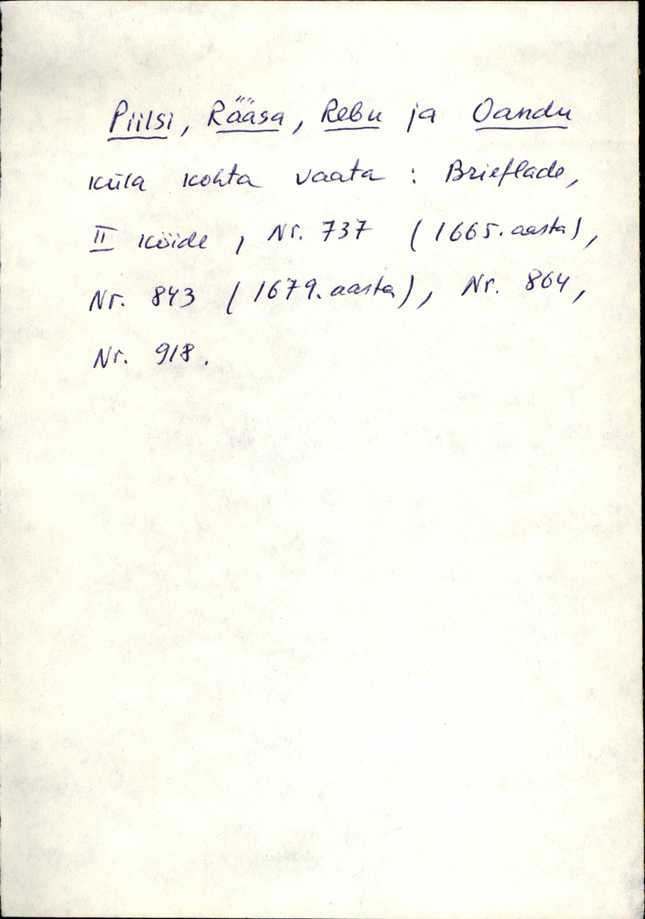 Piilsi, Rääsa, Rebu ja Oandu
küla kohta vaata : Brieflade,
II köide, Nr. 737 (1665. aasta),
Nr. 843 (1679. aasta), Nr. 864,
Nr. 918.